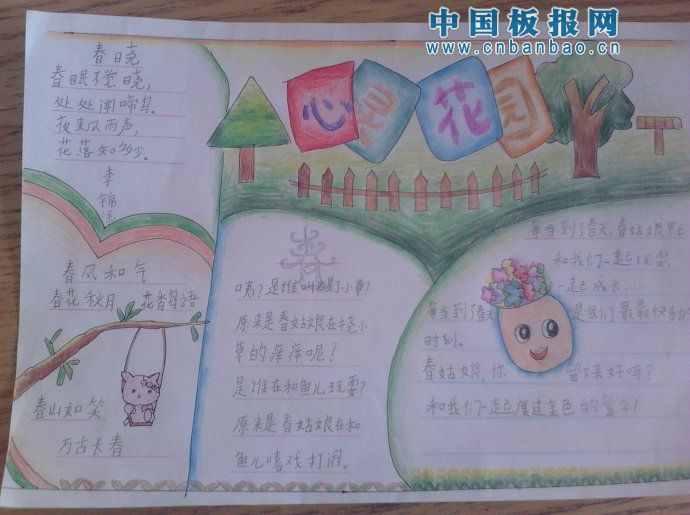 中国板报网
www.cnbanbao.cn
心灵花园
春晓
春眠不觉晓,
处处闻啼鸟。
夜来风雨声,
花落知多少。
李锦
春风和气
春花秋月 花香鸟语
春山如笑
万古长春
春
咦?是谁叫醒小草?
原来是春姑娘在挠小
草的痒痒呢!
是谁在和鱼儿玩耍?
原来是春姑娘在和
鱼儿嘻戏打闹。
每当到了春天,春姑娘就
和我们一起玩耍,
一起成长……
每当到了春天 是我们最最快乐的
时刻。
春姑娘,你 留下来好吗?
和我们一起度过金色的童年!